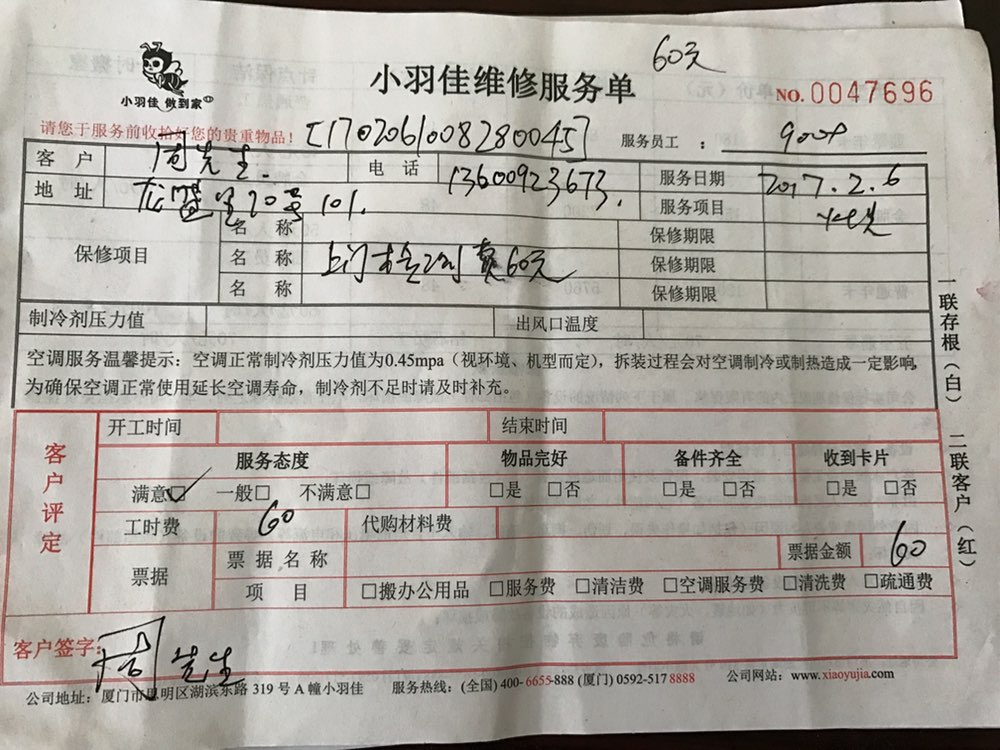 60元
小羽佳 做到家
小羽佳维修服务单
NO.0047696
请您于服务前收拾好您的贵重物品！
[1702061008280045]
服务员工 ：
客 户 周先生. 电 话 13600923673. 服务日期 2017.2.6
地 址 20号101. 服务项目
保修项目 名 称 保修期限
名 称 上门 费60元 保修期限
名 称 保修期限
制冷剂压力值 出风口温度
空调服务温馨提示：空调正常制冷剂压力值为0.45mpa（视环境、机型而定），拆装过程会对空调制冷或制热造成一定影响,
为确保空调正常使用延长空调寿命，制冷剂不足时请及时补充。
一联存根（白） 二联客户（红）
客户评定
开工时间 结束时间
服务态度 物品完好 备件齐全 收到卡片
满意☑ 一般□ 不满意□ □是 □否 □是 □否 □是 □否
工时费 60 代购材料费
票据 票据名称 票据金额 60
项 目 □搬办公用品 □服务费 □清洁费 □空调服务费 □清洗费 □疏通费
客户签字: 周先生
公司地址：厦门市思明区湖滨东路 319 号 A 幢小羽佳 服务热线：(全国) 400-6655-888 (厦门) 0592-517 8888 公司网站：www.xiaoyujia.com